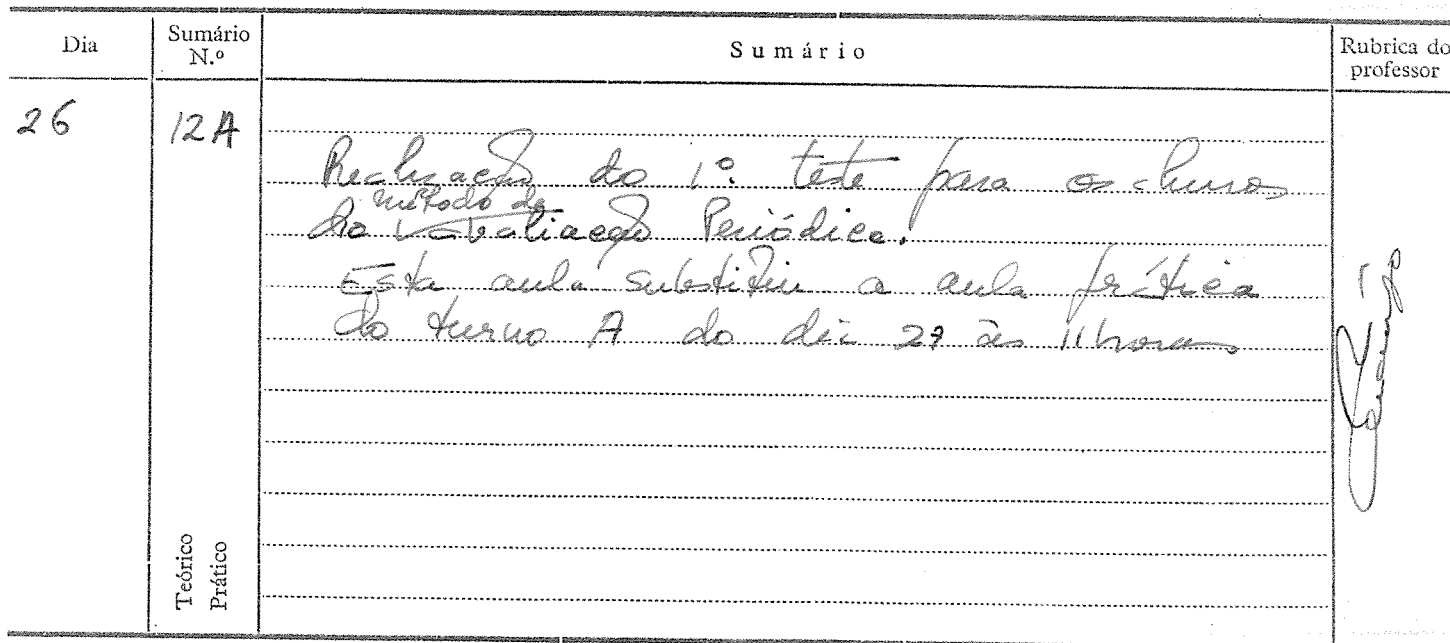 Dia
Sumário N.º
Sumário
Rubrica do professor
26
12A
Realização do 1º. teste para os alunos
do método de Avaliação Periódica.
Esta aula substitiu a aula prática
do turno A do dia 27 às 11 horas
Teórico
Prático